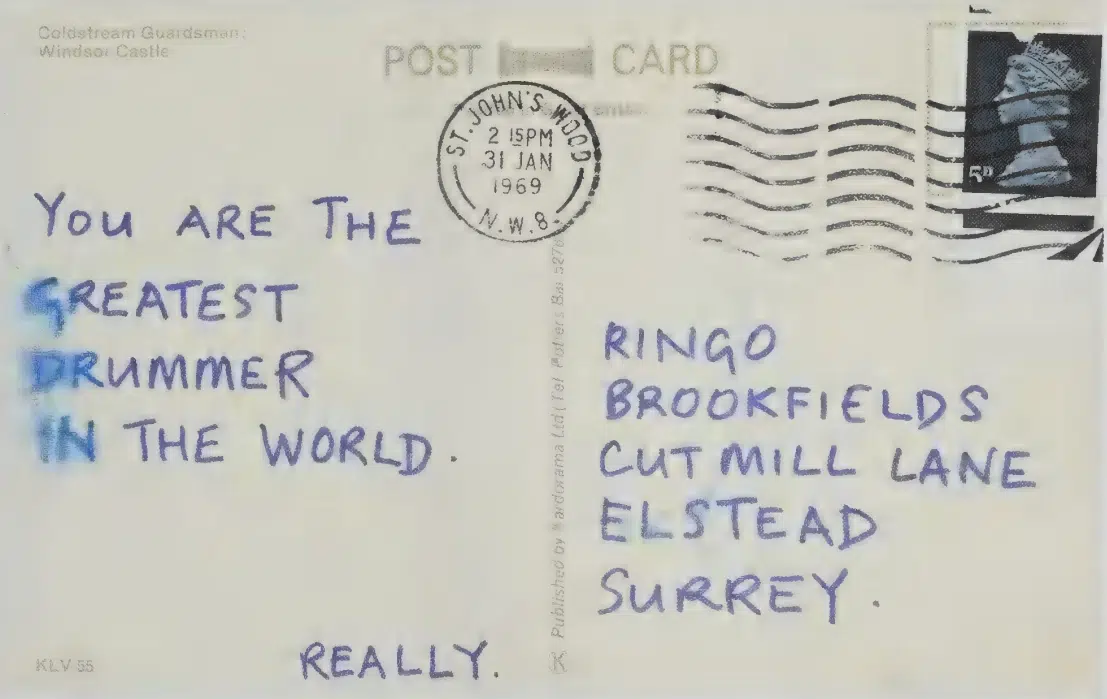 Coldstream Guardsman;
Windsor Castle
POST CARD
ST. JOHN'S WOOD
2 15PM
31 JAN
1969
N.W.8
5D
YOU ARE THE
GREATEST
DRUMMER
IN THE WORLD.
REALLY.
RINGO
BROOKFIELDS
CUTMILL LANE
ELSTEAD
SURREY.
KLV 55
K Published by Kardorama Ltd (Tel. Potters Bar